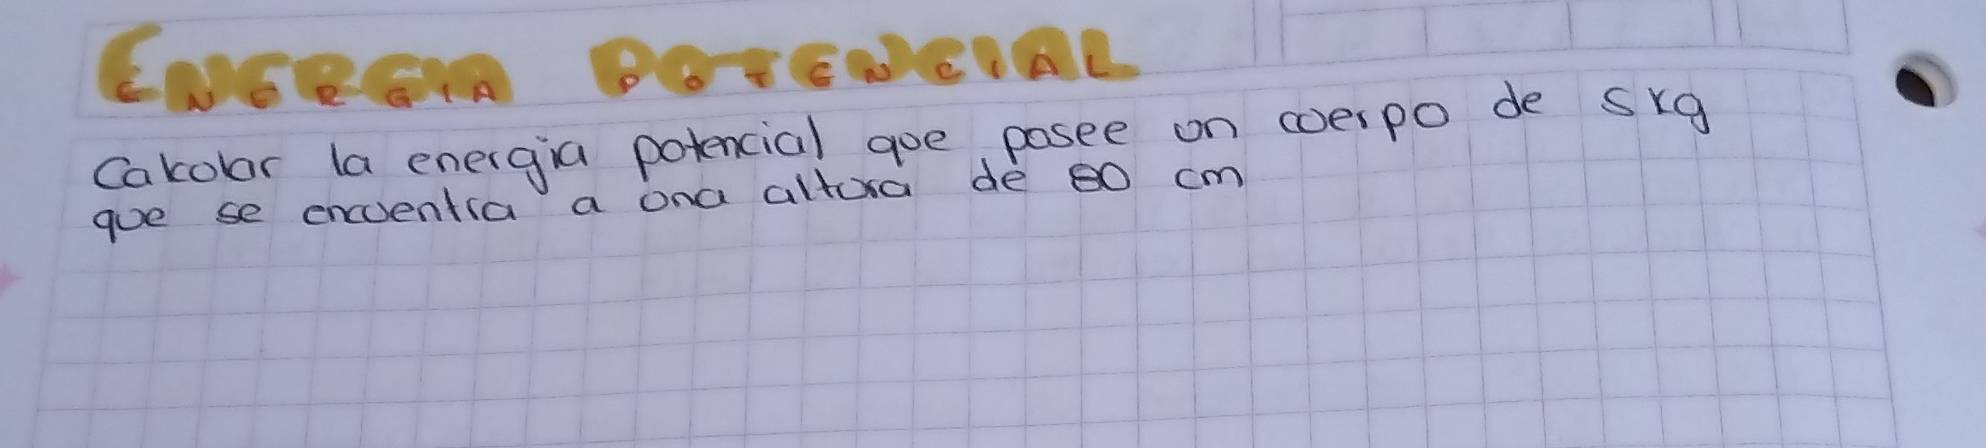 ENERGIA POTENCIAL
Calcular la energia potencial que posee un cuerpo de 5kg
que se encuentra a una altura de 80 cm